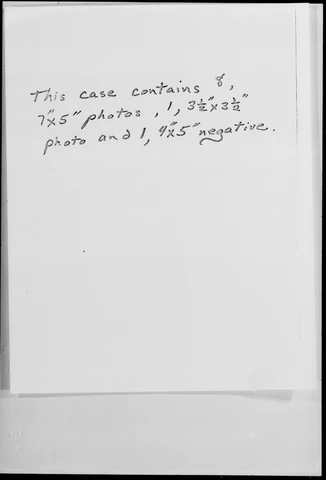 This case contains 8,
7"x5" photos, 1, 3½"x3½"
photo and 1, 4"x5" negative.